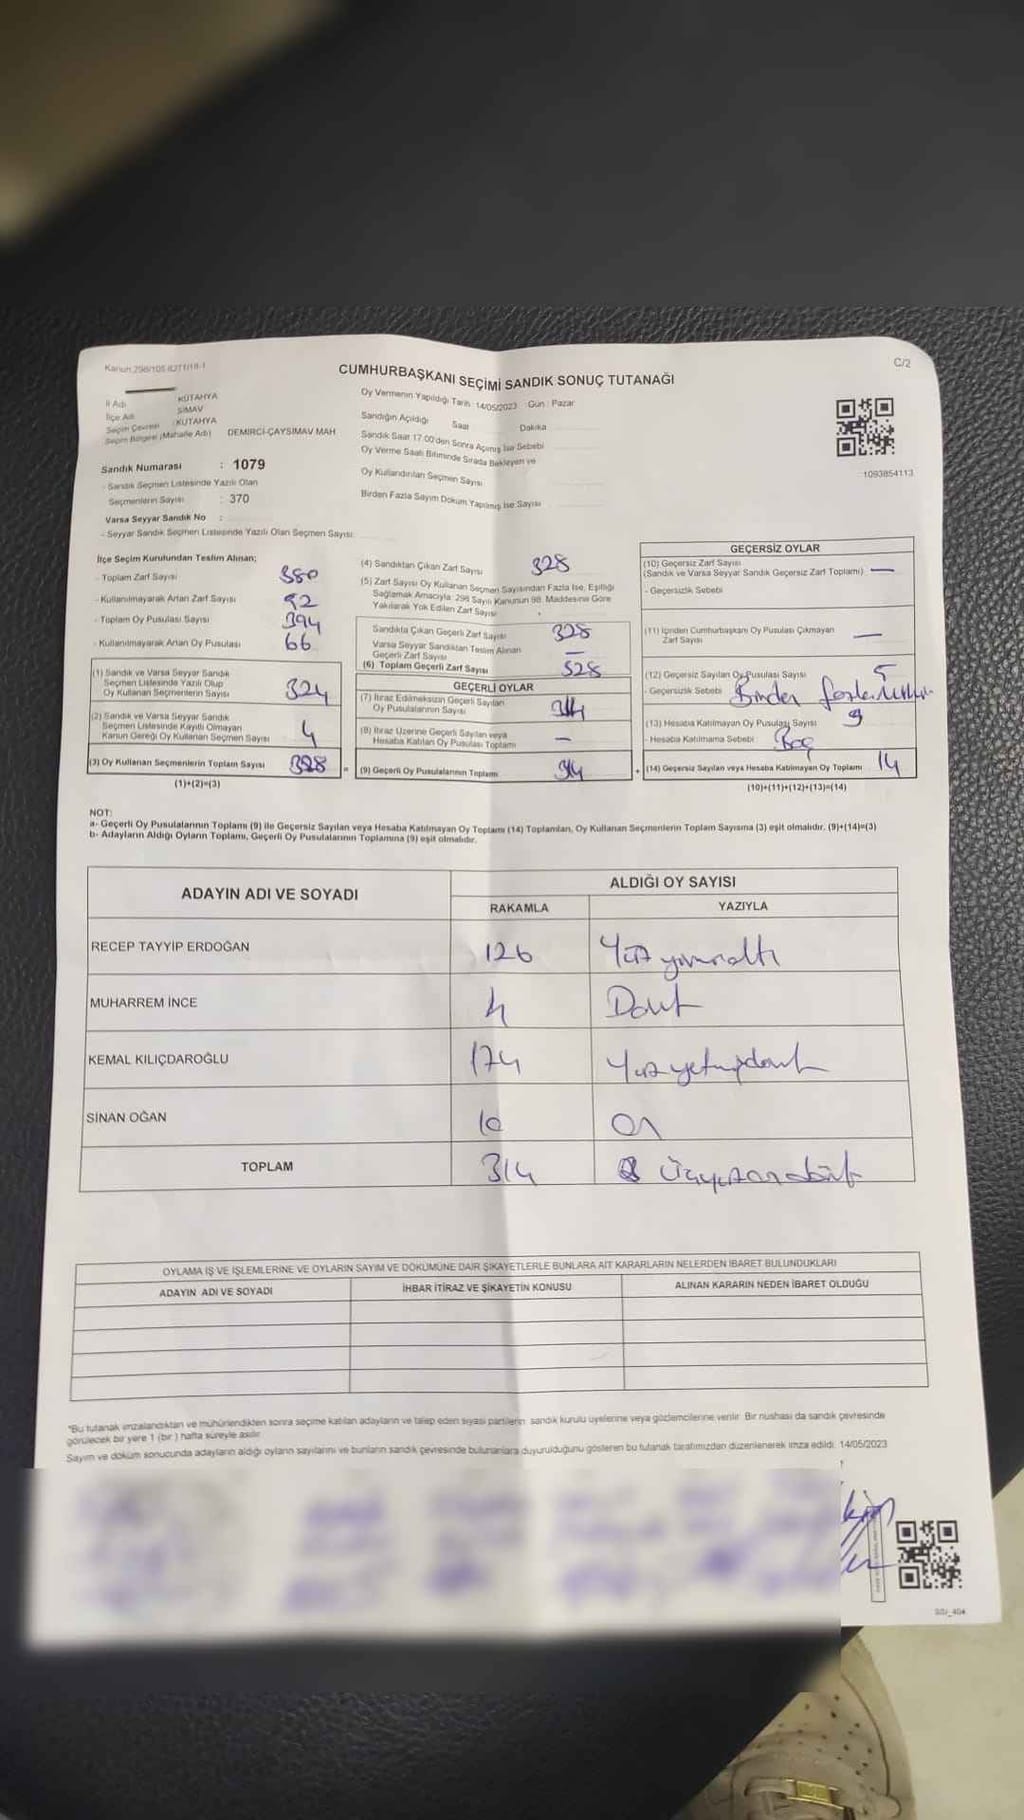 Kanun 298/105
C/2
CUMHURBAŞKANI SEÇİMİ SANDIK SONUÇ TUTANAĞI
İl Adı KÜTAHYA
İlçe Adı SİMAV
Seçim Çevresi : KÜTAHYA
Seçim Bölgesi (Mahalle Adı) DEMİRCİ-ÇAYSİMAV MAH
Sandık Numarası : 1079
- Sandık Seçmen Listesinde Yazılı Olan
Seçmenlerin Sayısı : 370
Varsa Seyyar Sandık No :
- Seyyar Sandık Seçmen Listesinde Yazılı Olan Seçmen Sayısı:
Oy Vermenin Yapıldığı Tarih : 14/05/2023 Gün : Pazar
Sandığın Açıldığı Saat Dakika
Sandık Saat 17.00'den Sonra Açılmış İse Sebebi
Oy Verme Saati Bitiminde Sırada Bekleyen ve
Oy Kullandırılan Seçmen Sayısı
Birden Fazla Sayım Döküm Yapılmış İse Sayısı
1093854113
İlçe Seçim Kurulundan Teslim Alınan;
- Toplam Zarf Sayısı 380
- Kullanılmayarak Artan Zarf Sayısı 52
- Toplam Oy Pusulası Sayısı 394
- Kullanılmayarak Artan Oy Pusulası 66
(1) Sandık ve Varsa Seyyar Sandık
Seçmen Listesinde Yazılı Olup
Oy Kullanan Seçmenlerin Sayısı 324
(2) Sandık ve Varsa Seyyar Sandık
Seçmen Listesinde Kayıtlı Olmayan
Kanun Gereği Oy Kullanan Seçmen Sayısı 4
(3) Oy Kullanan Seçmenlerin Toplam Sayısı 328
(1)+(2)=(3)
(4) Sandıktan Çıkan Zarf Sayısı 328
(5) Zarf Sayısı Oy Kullanan Seçmen Sayısından Fazla İse, Eşitliği
Sağlamak Amacıyla, 298 Sayılı Kanunun 98. Maddesine Göre
Yakılarak Yok Edilen Zarf Sayısı
Sandıkta Çıkan Geçerli Zarf Sayısı 328
Varsa Seyyar Sandıktan Teslim Alınan
Geçerli Zarf Sayısı —
(6) Toplam Geçerli Zarf Sayısı 328
GEÇERLİ OYLAR
(7) İtiraz Edilmeksizin Geçerli Sayılan
Oy Pusulalarının Sayısı 314
(8) İtiraz Üzerine Geçerli Sayılan veya
Hesaba Katılan Oy Pusulası Toplamı —
(9) Geçerli Oy Pusulalarının Toplamı 314
GEÇERSİZ OYLAR
(10) Geçersiz Zarf Sayısı
(Sandık ve Varsa Seyyar Sandık Geçersiz Zarf Toplamı) —
- Geçersizlik Sebebi
(11) İçinden Cumhurbaşkanı Oy Pusulası Çıkmayan
Zarf Sayısı —
(12) Geçersiz Sayılan Oy Pusulası Sayısı 5
- Geçersizlik Sebebi Birden fazla
(13) Hesaba Katılmayan Oy Pusulası Sayısı 9
- Hesaba Katılmama Sebebi : Boş
(14) Geçersiz Sayılan veya Hesaba Katılmayan Oy Toplamı 14
(10)+(11)+(12)+(13)=(14)
NOT:
a- Geçerli Oy Pusulalarının Toplamı (9) ile Geçersiz Sayılan veya Hesaba Katılmayan Oy Toplamı (14) Toplamları, Oy Kullanan Seçmenlerin Toplam Sayısına (3) eşit olmalıdır. (9)+(14)=(3)
b- Adayların Aldığı Oyların Toplamı, Geçerli Oy Pusulalarının Toplamına (9) eşit olmalıdır.
ADAYIN ADI VE SOYADI
ALDIĞI OY SAYISI
RAKAMLA YAZIYLA
RECEP TAYYİP ERDOĞAN 126 Yüz yirmialtı
MUHARREM İNCE 4 Dört
KEMAL KILIÇDAROĞLU 174 Yüzyetmişdört
SİNAN OĞAN 10 On
TOPLAM 314 Üçyüzondört
OYLAMA İŞ VE İŞLEMLERİNE VE OYLARIN SAYIM VE DÖKÜMÜNE DAİR ŞİKAYETLERLE BUNLARA AİT KARARLARIN NELERDEN İBARET BULUNDUKLARI
ADAYIN ADI VE SOYADI İHBAR İTİRAZ VE ŞİKAYETİN KONUSU ALINAN KARARIN NEDEN İBARET OLDUĞU
*Bu tutanak imzalandıktan ve mühürlendikten sonra seçime katılan adayların ve talep eden siyasi partilerin sandık kurulu üyelerine veya gözlemcilerine verilir. Bir nüshası da sandık çevresinde
görülecek bir yere 1 (bir) hafta süreyle asılır.
Sayım ve döküm sonucunda adayların aldığı oyların sayılarını ve bunların sandık çevresinde bulunanlara duyurulduğunu gösteren bu tutanak tarafımızdan düzenlenerek imza edildi. 14/05/2023